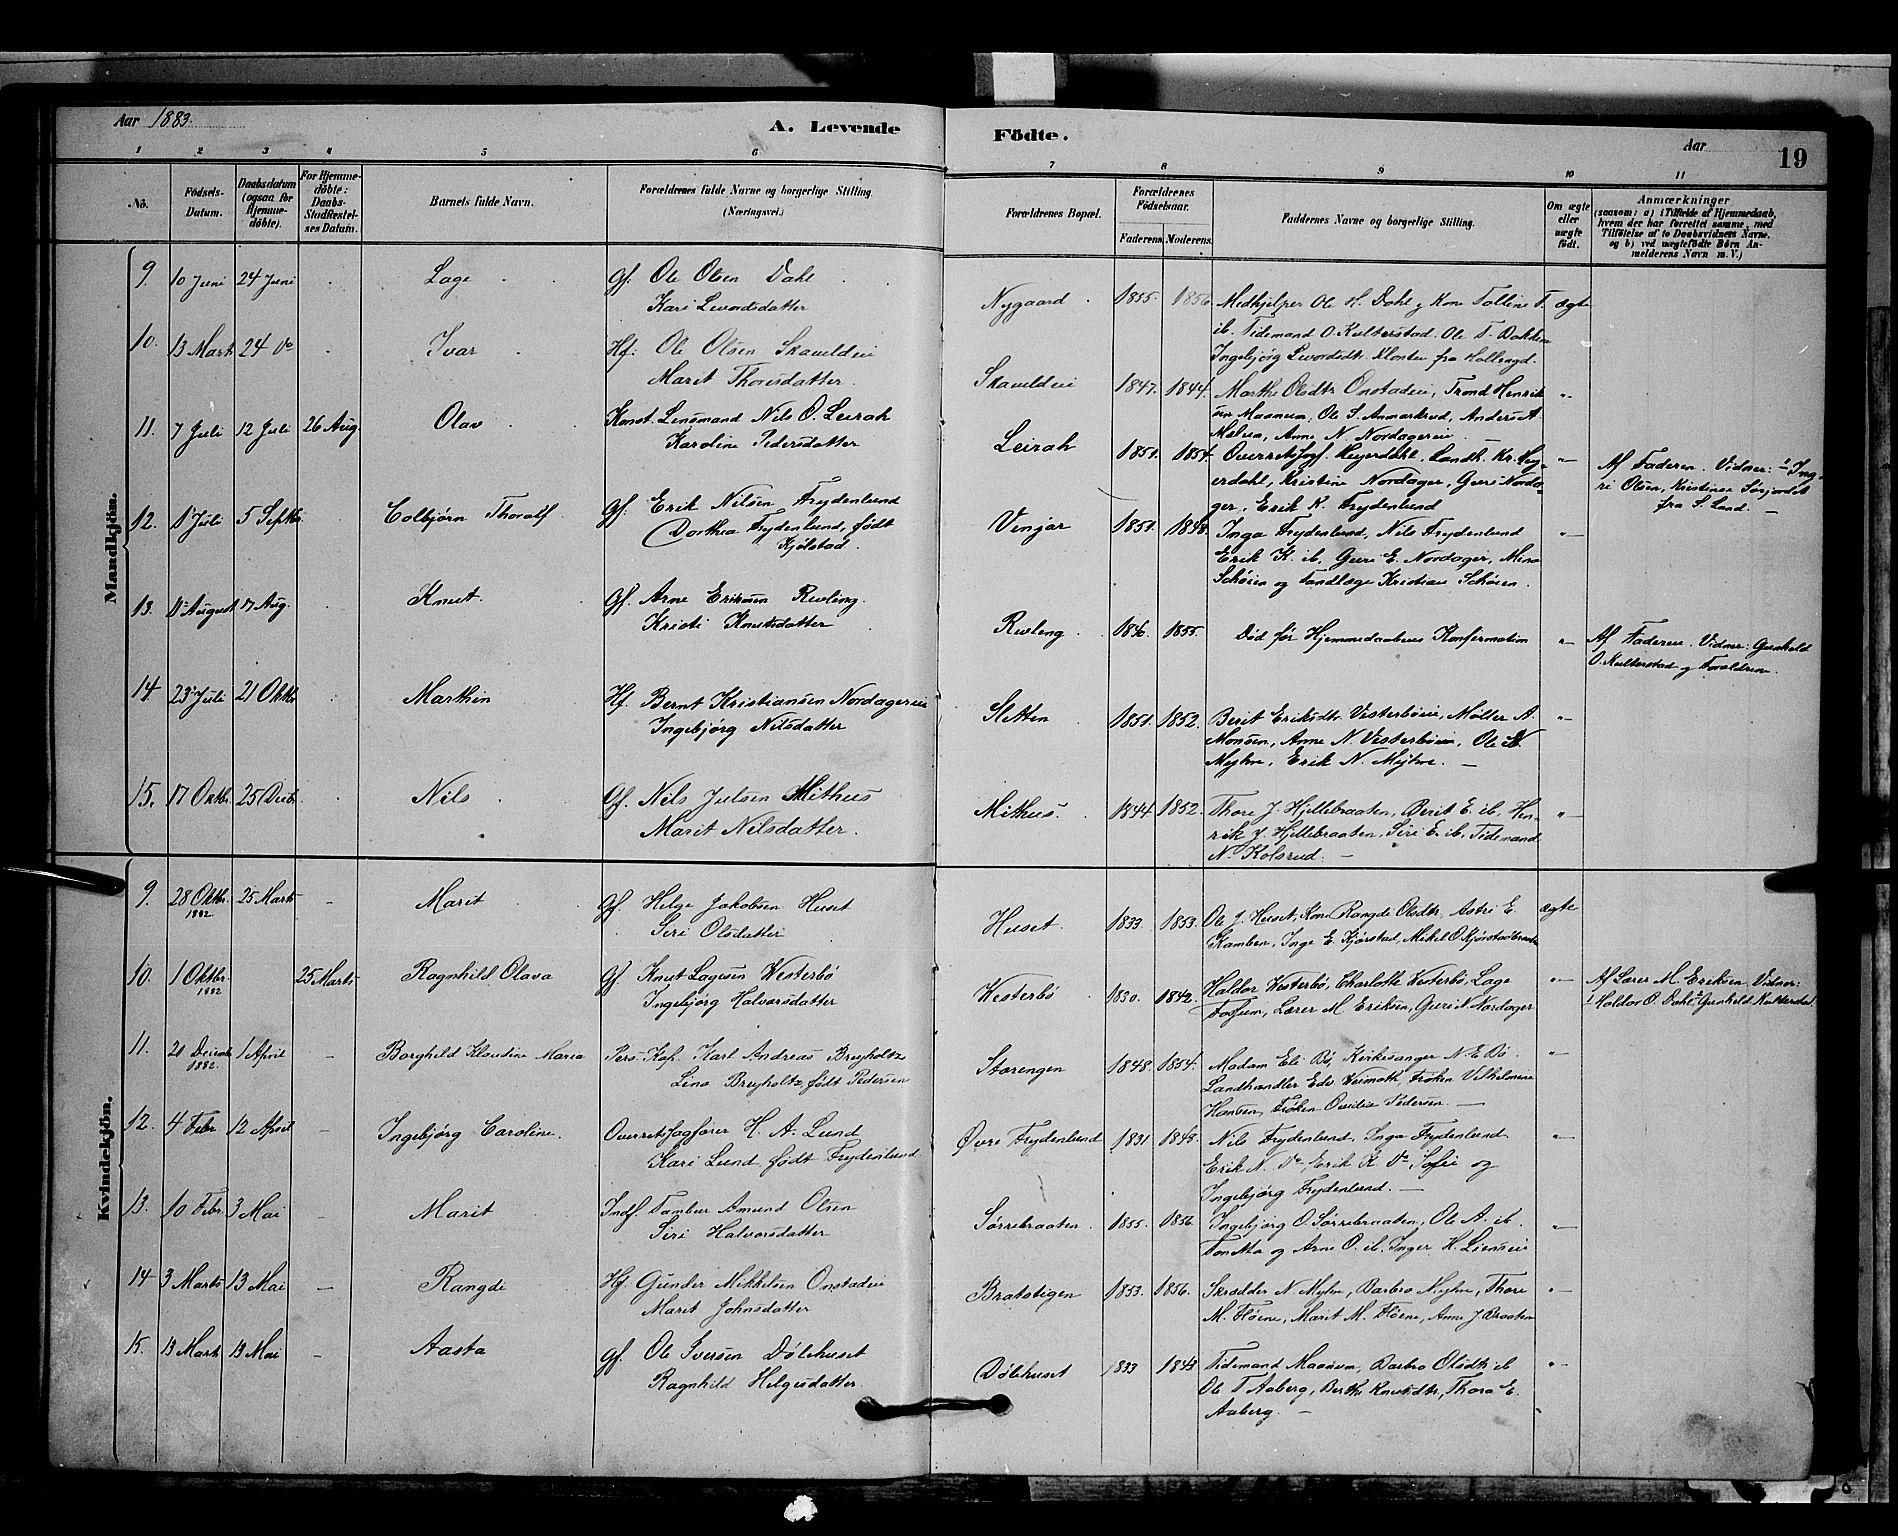 Aar 1883.
A. Levende
Födte.
Aar
19
1 2 3 4 5 6 7 8 9 10 11
No.
Födsels-
Datum.
Daabsdatum
(ogsaa for
Hjemme-
döbte).
For Hjemme-
döbte:
Daabs-
Stadfestel-
ses Datum.
Barnets fulde Navn.
Forældrenes fulde Navne og borgerlige Stilling.
(Næringsvei.)
Forældrenes Bopæl.
Forældrenes
Födselsaar.
Faderens. Moderens.
Faddernes Navne og borgerlige Stilling.
Om ægte
eller
uægte
födt.
Anmærkninger
(saasom: a) i Tilfælde af Hjemmedaab,
hvem der har forrettet samme, med
Tilföielse af to Daabsvidners Navne,
og b) ved uægtefödte Börn An-
melderens Navn m. V.)
Mandkjön.
9. 10 Juni 24 Juni Lage Gf. Ole Olsen Dahl
Kari Levordsdatter
Nygaard 1855. 1856 Medhjelper Ole H. Dahl, Kone Tolline T. ægte
ib. Tidemand O. Kulterstad. Ole T. Dokken
Ingebjørg Levordsdt. Kloster fra Hallingd.
10. 13 Mart 24 Do Ivar Hf: Ole Olsen Skaveldeie
Marit Thoresdatter.
Skaveldeie 1847. 1844. Marthe Olsdtr Onstadeie, Trond Henrik
sen Maanum, Ole S. Aamarkrud, Anders A.
Melien, Anne N. Nordagereie
11. 7 Juli 12 Juli 26 Aug. Olav Konst. Lensmand Nils O. Leirah
Karoline Pedersdatter
Leirah 1851. 1854. Overretssagf. Heyerdahl. Landh. Kr. Hey-
erdahl, Kristine Nordager, Guri Norda-
ger, Erik K. Frydenlund
Af Faderen. Vidner: Ing-
ri Olsen, Kristinea Sørjordet
fra S. Land.
12. 1 Juli 5 Septbr. Colbjørn Thoralf Gf. Erik Nilsen Frydenlund
Dorthea Frydenlund, født
Kjølstad.
Vinjar 1851. 1848. Inga Frydenlund, Nils Frydenlund
Erik K. ib. Guri E. Nordager, Mina
Schøien og Tandlæge Kristian Schøien.
13. 1ste August 17 Aug. Knut. Gf. Arne Eriksen Revling.
Kristi Knutsdatter
Revling 1846. 1855. Død før Hjemmedaabens Konfirmation
Af Faderen. Vidner: Gunhild
O. Kulterstad og Forældrene.
14 23 Juli 21 Oktbr Marthin Hf. Bernt Kristiansen Nordagereie
Ingebjørg Nilsdatter
Sletten 1851. 1852. Berit Eriksdtr Vesterbøeie, Møller A.
Monsen, Anne N. Vesterbøeie, Ole N.
Myhre, Erik N. Myhre.
15. 17 Oktbr. 25 Decbr. Nils Gf. Nils Julsen Mithus
Marit Nilsdatter.
Mithus. 1844 1852. Thore J. Hjellebraaten, Berit E. ib. Hen-
rik J. Hjellebraaten, Siri E. ib. Tidemand
N. Kolsrud.
Kvindekjön.
9. 28 Oktbr. 1882 25 Marts Marit Gf. Helge Jakobsen Huset
Siri Olsdatter
Huset. 1833. 1853. Ole J. Huset, Kone Rangdi Olsdtr, Astri E. ægte
Kamben, Inge E. Kjørstad, Mikel O. Kjørstadbraaten
10. 1 Oktbr. 1882 25 Marts Ragnhild Olava Gf. Knut Lagesen Vesterbø
Ingebjørg Halvorsdatter
Vesterbø 1830. 1842. Haldor Vesterbø, Charlotte Vesterbø, Lage
Fossum, Lærer M. Eriksen, Guri N. Nordager
Af Lærer M. Eriksen. Vidner:
Haldor O. Dahl, Gunhild Kulterstad
11. 21 Decmbr 1882. 1 April Borghild Klaudine Maria Pers. Kap. Karl Andreas Bryholtz
Lina Bryholtz, født Pedersen
Storengen 1848. 1854. Madam Eli Bø, Kirkesanger N. E. Bø.
Landhandler Edv. Wermoth, Frøken Vilhelmine
Hansen, Frøken Ovidia Pedersen.
12. 4 Febr. 12 April Ingebjørg Caroline. Overretssagfører H. A. Lund
Kari Lund, født Frydenlund
Øvre Frydenlund 1831 1845. Nils Frydenlund, Inga Frydenlund
Erik N. Do, Erik K. Do, Sofie og
Ingebjørg Frydenlund.
13. 10 Febr. 3 Mai Marit Indf. Tambur Amund Olsen
Siri Halvorsdatter
Sørrebraaten. 1855. 1856. Ingebjørg O. Sørrebraaten, Ole A. ib.
Tonetta og Arne O. ib. Inger H. Lienseie
14 3 Marts 13 Mai Rangdi Hf. Gunder Mikkelsen Onstadeie
Marit Johnsdatter
Bratstigen 1853. 1856. Skrædder N. Myhre, Barbro Myhre, Thore
M. Fløene, Marit M. Fløene, Anne J. Braaten
15. 13 Mart. 13 Mai Aasta Gf. Ole Iversen Dølehuset
Ragnhild Helgesdatter
Dølehuset 1833 1843 Tidemand Maanum, Barbro Olsdtr. ib
Ole T. Aaberg, Berthe Knutsdtr, Thora E.
Aaberg.